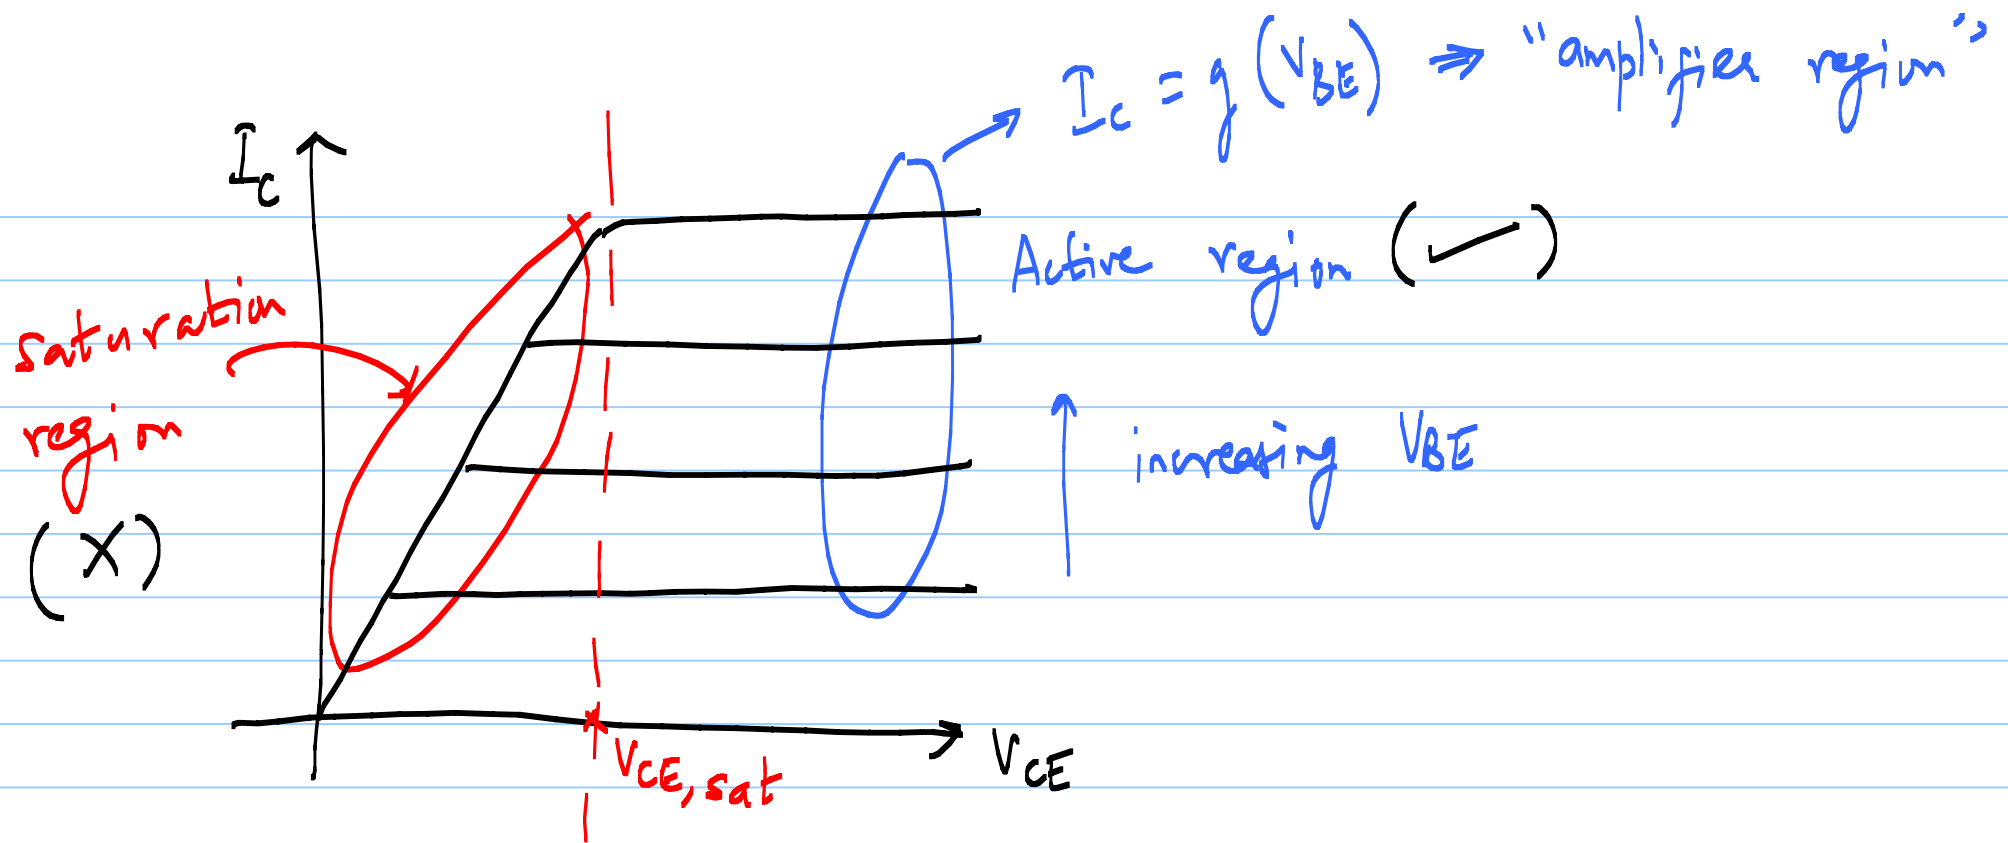 I_C = g(V_BE) ⇒ "amplifier region"
I_C
Active region (✓)
saturation
region
(X)
increasing V_BE
V_CE,sat
V_CE